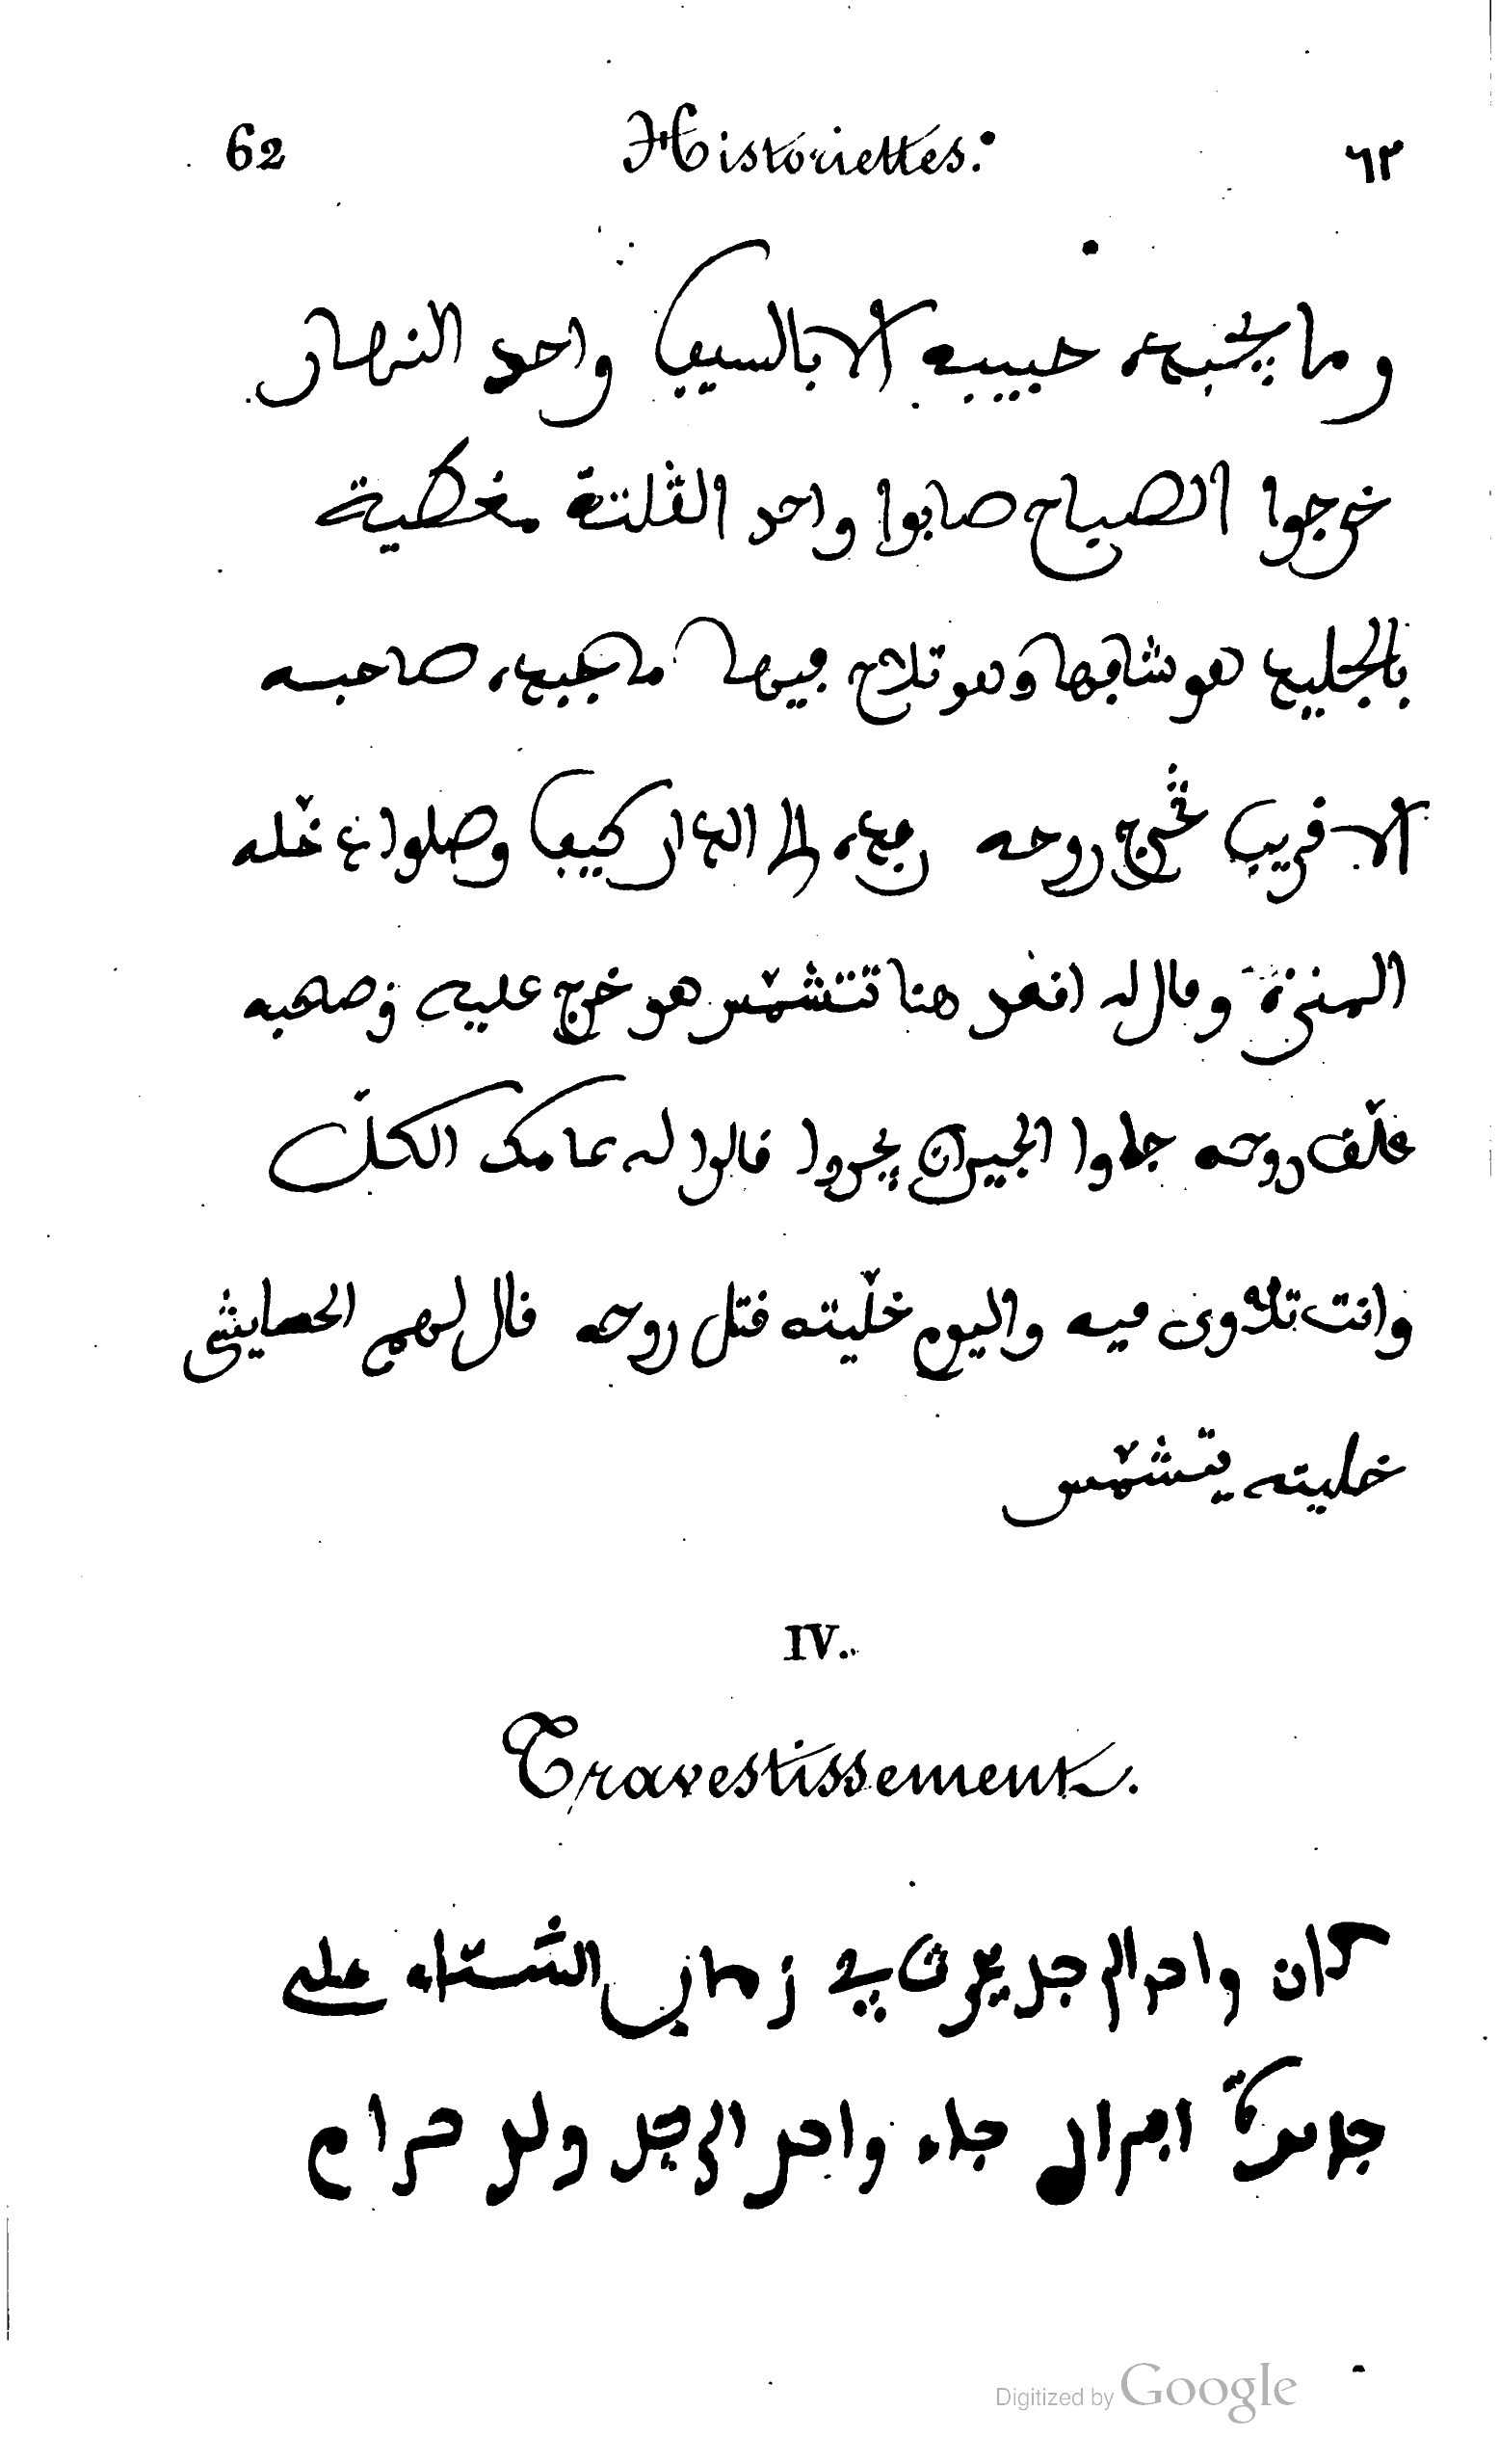 62 Historiettes: ٦٢
وما يجبده حبيبه الا بالسيف واحد النهار
خرجوا الصباح صابوا واحد الڤلتة مغطية
بالجليد هو شافها وهو تلاح فيها ما يجبده صاحبه
الا قريب تخرج روحه رجع لى الدار كيف وصلوا دخّله
المنزه وقال له اقعد هنا تتشمّس هو خرج عليه وصحبه
علّق روحه جاوا الجيران يجروا قالوا له عامك الكلّ
وانت تداوى فيه واليوم خلّيته قتل روحه قال لهم الحشايشى
خليته يتشمّس
IV.
Travestissement.
كان واحد الرجل يحرث في زمان الشتاء على
جاء واحد الرجل ولد حرام
Digitized by Google